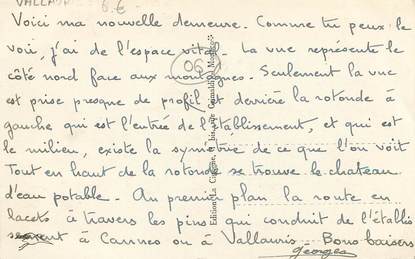 VALLAUR
Voici ma nouvelle demeure. Comme tu peux le
voir, j'ai de l'espace vital. La vue représente le
côté nord face aux montagnes. Seulement la vue
est prise presque de profil et derrière la rotonde à
gauche qui est l'entrée de l'établissement, et qui est
le milieu, existe la symétrie de ce que l'on voit
Tout en haut de la rotonde se trouve le chateau
d'eau potable. Au premier plan la route en
lacets à travers les pins qui conduit de l'établis
sement à Cannes ou à Vallauris. Bons baisers
Georges
06
Edition La Cigogne